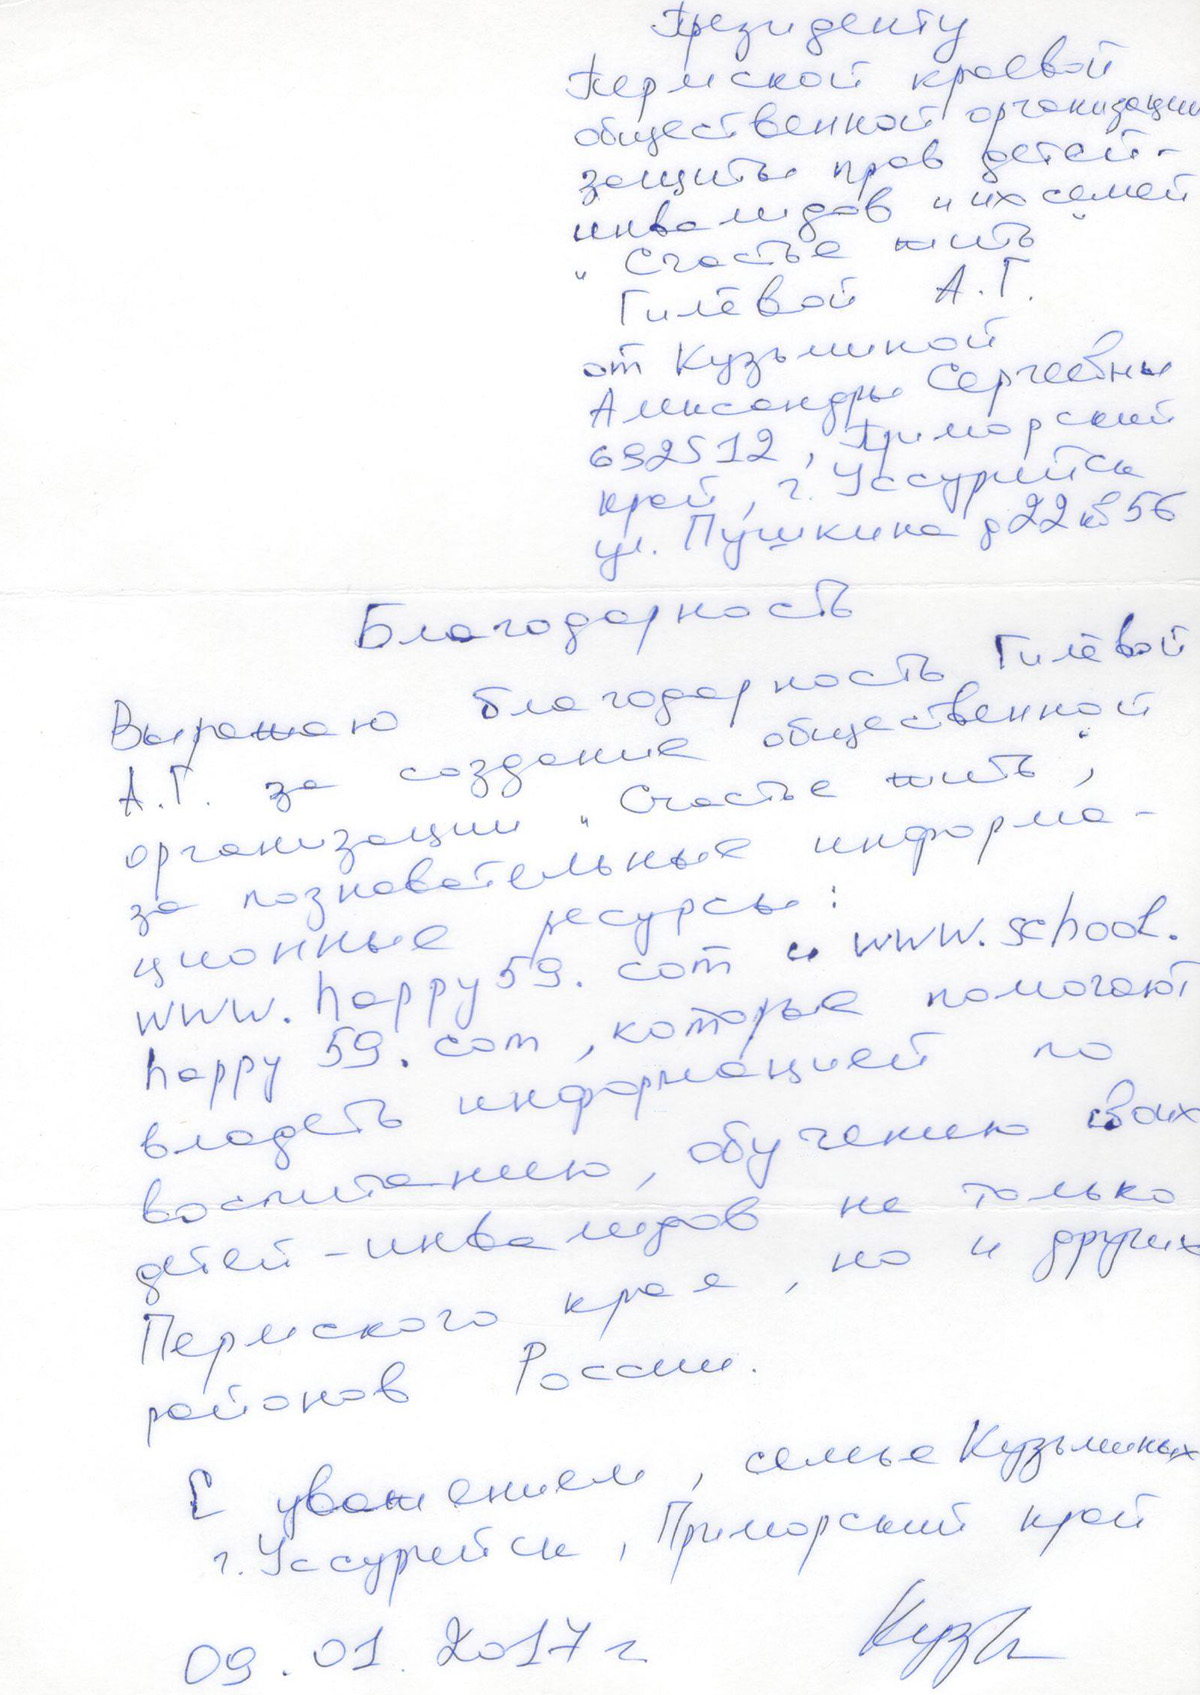 Президенту
Пермской краевой
общественной организации
защиты прав детей-
инвалидов и их семей
"Счастье жить"
Гилёвой А.Г.
от Кузьминой
Александры Сергеевны
692512, Приморский
край, г. Уссурийск
ул. Пушкина д 22 кв 56
Благодарность
Выражаю благодарность Гилёвой
А.Г. за создание общественной
организации "Счастье жить",
за познавательные информа-
ционные ресурсы:
www.happy59.com и www.school.
happy59.com, которые помогают
владеть информацией по
воспитанию, обучению своих
детей-инвалидов не только
Пермского края, но и других
районов России.
С уважением, семья Кузьминых
г. Уссурийск, Приморский край
09.01.2017 г
Кузь